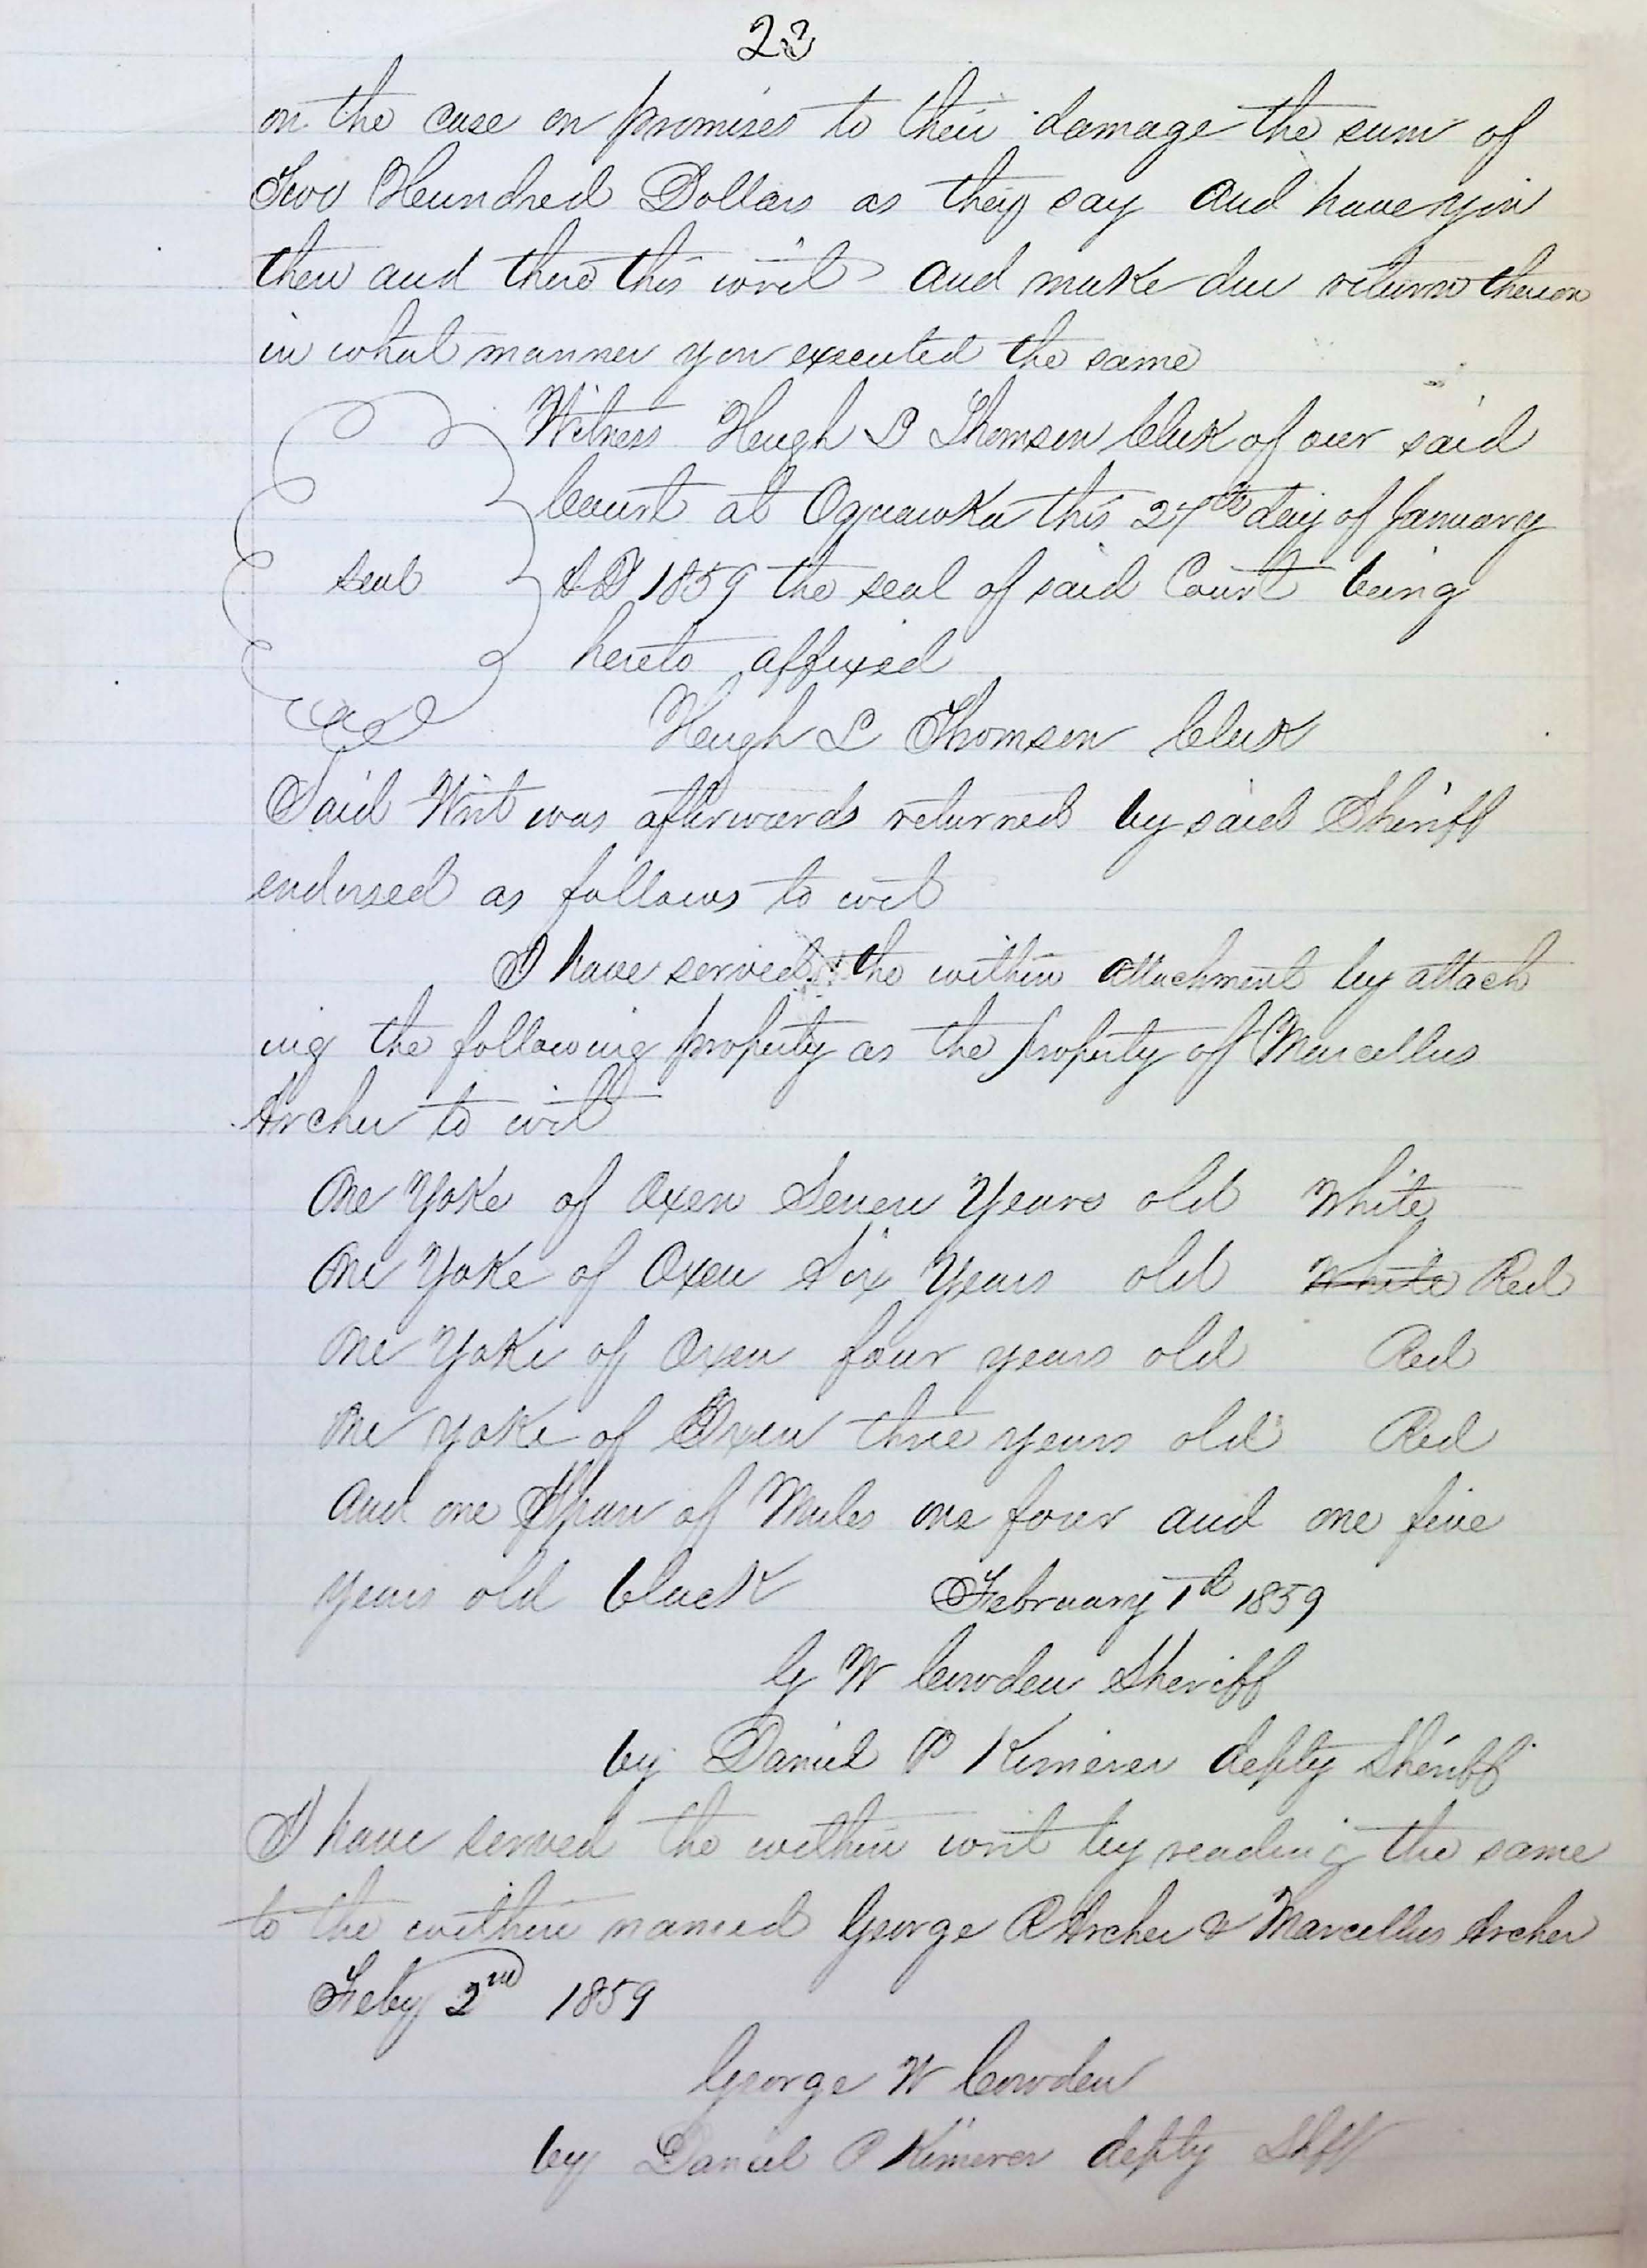 23
on the case on promises to their damage the sum of
Two Hundred Dollars as they say and have you
then and there this writ and make due return thereon
in what manner you executed the same
Witness Hugh L Thomson Clerk of our said
Court at Oquawka this 27th day of January
seal AD 1859 the seal of said Court being
hereto affixed
Hugh L Thomson Clerk
Said Writ was afterwards returned by said Sheriff
endorsed as follows to wit
I have served the within attachment by attach
ing the following property as the property of Marcellus
Archer to wit
One Yoke of Oxen Seven Years old White
One Yoke of Oxen Six Years old White Red
One Yoke of Oxen four years old Red
One yoke of Oxen three years old Red
and one Span of Mules one four and one five
years old black February 1st 1859
G W Cowden Sheriff
by Daniel P Kimerer depty Sheriff
I have served the within writ by reading the same
to the within named George P Archer & Marcellus Archer
Feby 2nd 1859
George W Cowden
by Daniel P Kimerer depty Shff